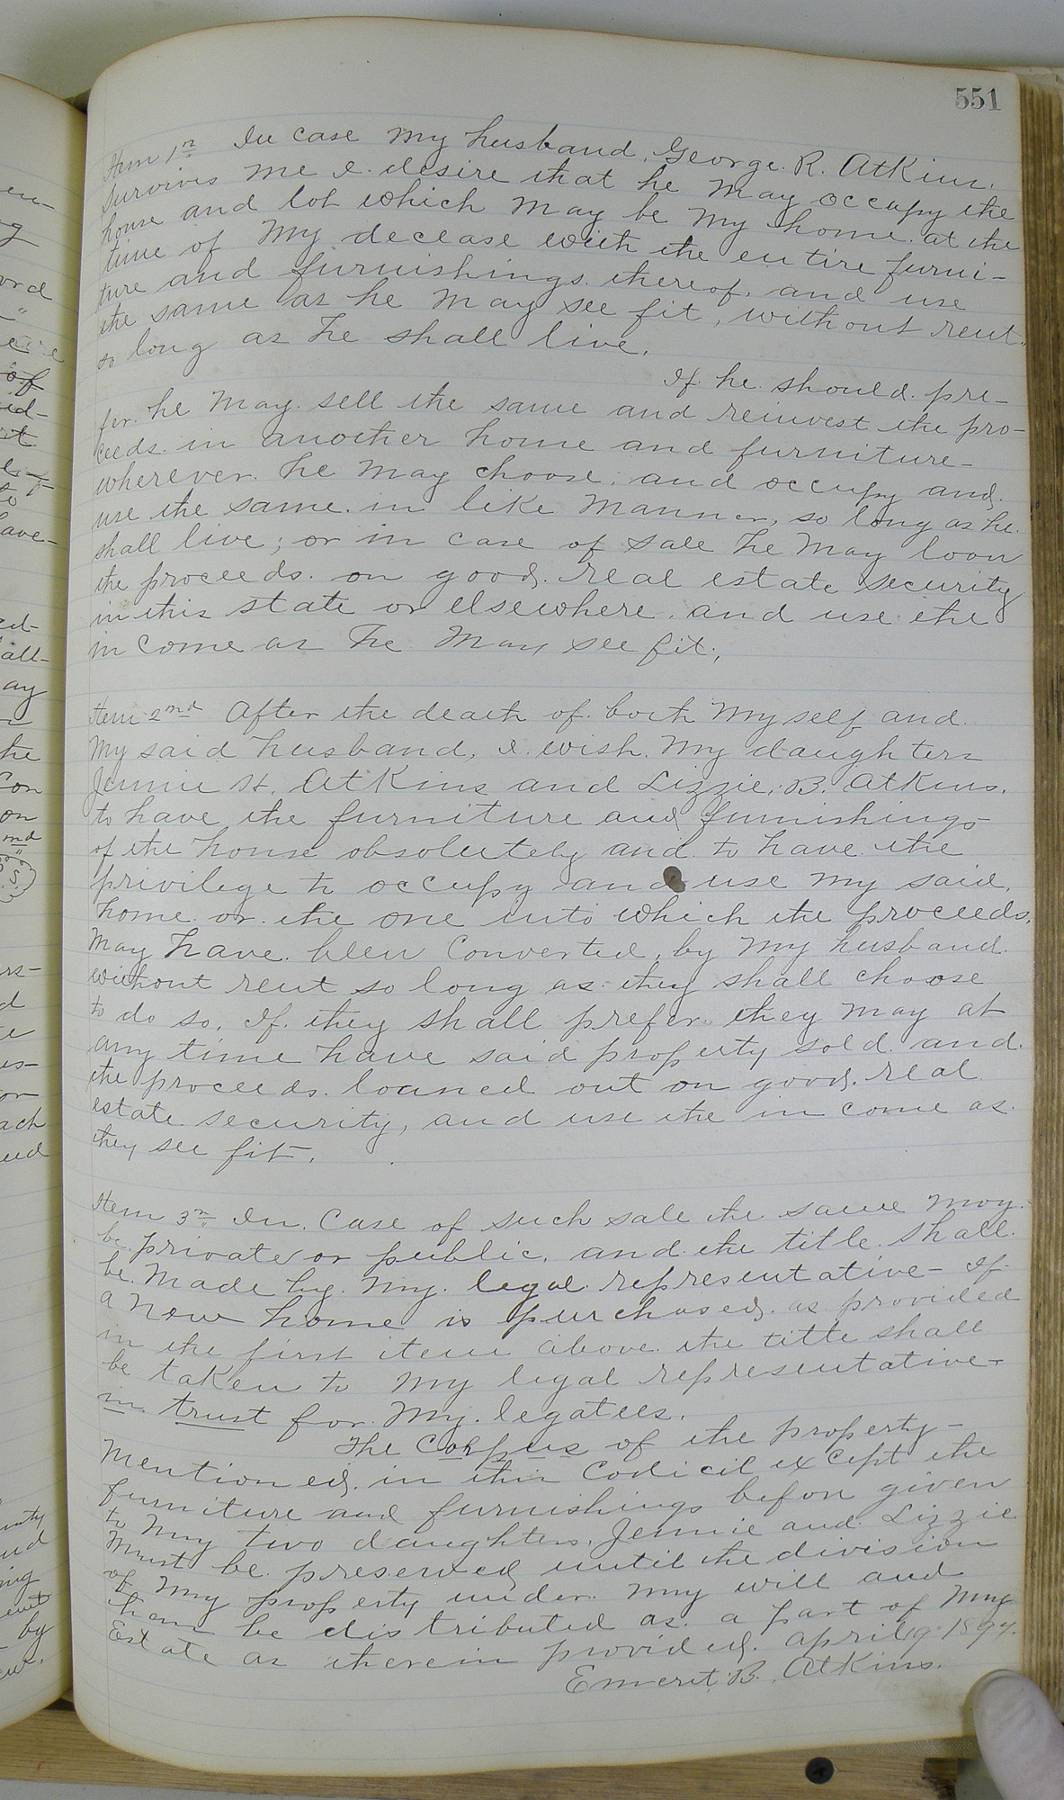 551
Item 1st In case my husband, George. R. Atkins.
survives me I. desire that he may occupy the
house and lot which may be my home. at the
time of my decease with the entire furni-
ture and furnishings. thereof. and use
the same as he may see fit, without rent.
so long as he shall live.
If. he. should. pre-
fer. he may. sell the same and reinvest the pro-
ceeds. in another home and furniture-
wherever. he may choose. and occupy and.
use the same. in like manner, so long as he.
shall live; or in case of sale he may loan
the proceeds. on good. real estate security
in this state or elsewhere. and use the
in come as he may see fit.,
Item 2nd After the death of. both my self and
my said husband, I. wish. my daughters
Jennie H. Atkins and Lizzie. B. Atkins.
to have the furniture and furnishings
of the house absolutely and to have the
privilege to occupy and use my said.
home. or. the one into which the proceeds.
may have been converted, by my husband.
without rent so long as they shall choose
to do so. If. they shall prefer. they may at
any time have said property sold. and.
the proceeds. loaned out on good. real
estate security, and use the in come as.
they see fit.
Item 3rd In. case of such sale the same may.
be. private or public. and the title. shall.
be. made by. my. legal representative- If.
a new home is purchased. as provided
in the first item above. the title shall
be taken to my legal representative-
in trust for. my. legatees.
The Corpus of the property-
mentioned. in this codicil except the
furniture and furnishings before given
to my two daughters, Jennie and Lizzie
must be. preserved until the division
of my property under my will and
be distributed as. a part of my
Estate as therein provided. April 19. 189
Emerit. B. Atkins.